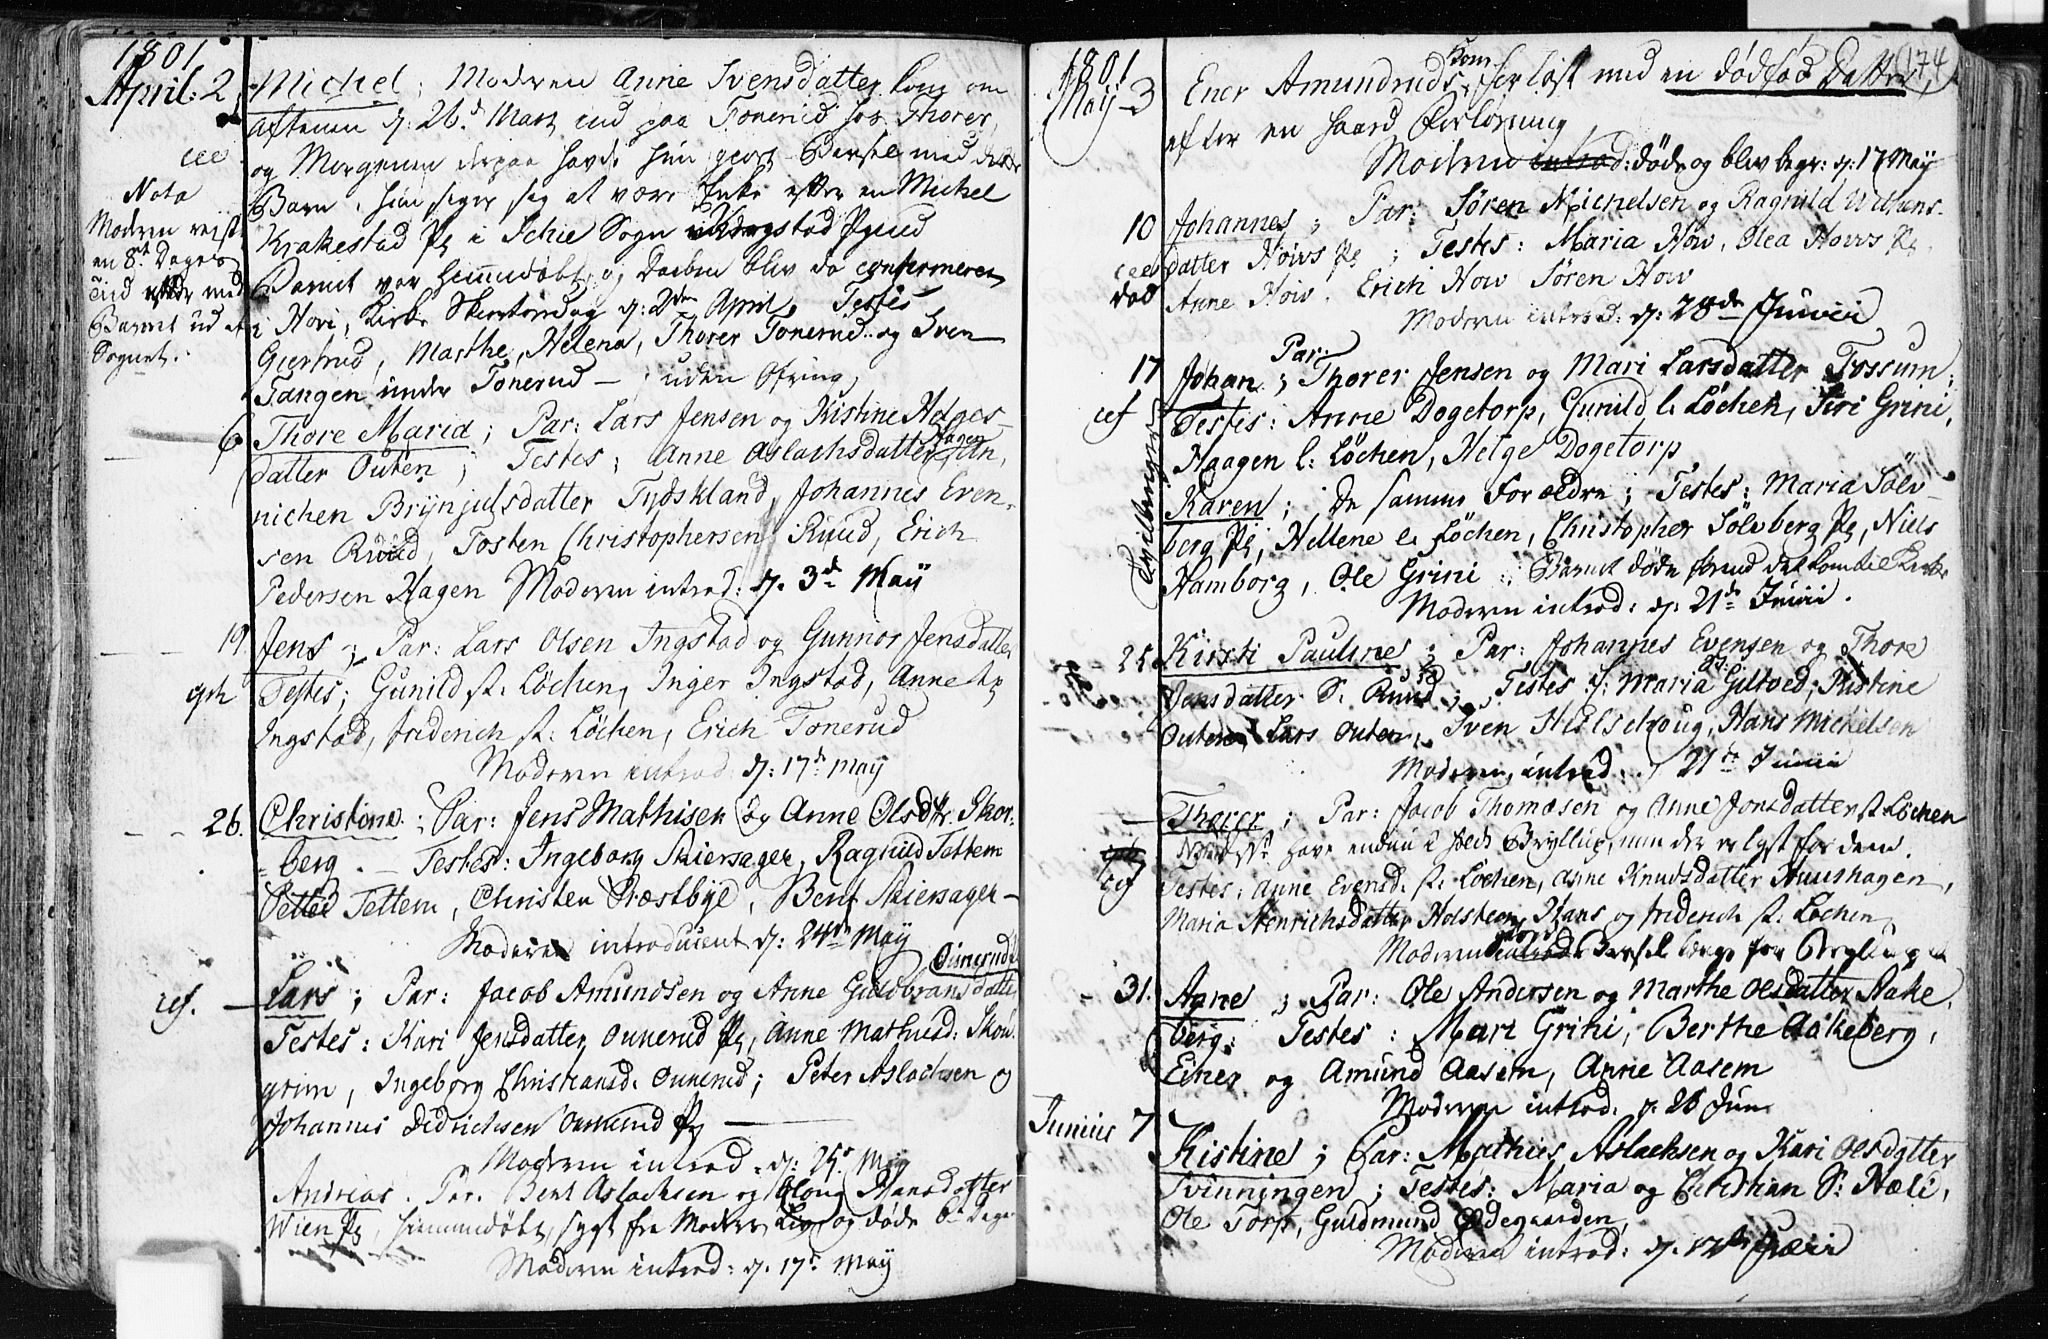 1801
April: 2
Michel; Moderen Anne Svensdatter kom om
Aftenen d: 26.d Mart ind paa Tonerud hos Thorer,
og Morgenen derpaa havde hun giort Barsel med dette
Barn, hun siger sig at være Enke efter en Michel
Krakestad Pl i Schie Sogn
Barnet var hiemmedøbt, og Daaben blev da confirmeret
i Hovi, Kirke Skertorsdag d: 2den April Testes
Giertrud, Marthe, Helena, Thorer Tonerud og Sven
Tangen under Tonerud — uden Ofring
Nota
Moderen reiste
en 8te Dages
Tid efter med
Barnet ud af
Sognet.
6 Thore Maria; Par: Lars Jensen og Kistine Helges-
datter Outen; Testes; Anne Aslachsdatter Hagen, An,
nichen Brynjulsdatter Tydskland, Johannes Even,
sen Ruud, Tosten Christophersen Ruud, Erich
Pedersen Hagen Moderen introd: d. 3d May
19 Jens; Par: Lars Olsen Ingstad og Gunnor Jensdatter
Testes; Gunild st: Løchen, Inger Ingstad, Anne
Ingstad, friderich st: Løchen, Erich Tonerud
Moderen introd: d: 17d May
26. Christine; Par: Jens Mathisen og Anne Olsdtr. Skor-
berg. — Testes: Ingeborg Skiersager, Ragnild Tettem
Petter Tettem, Christen Præstbye, Bent Skiersager —
Moderen introduceret d: 24de May
Lars; Par: Jacob Amundsen og Anne Guldbransdatter
Testes: Kari Jensdatter Ounerud Pl, Anne Mathisd: Skou-
grim, Ingeborg Christiansd. Ounerud; Peter Aslachsen og
Johannes Didrichsen Ounerud Pl —
Moderen introd: d: 25. May
Andreas. Par. Bent Aslachsen og Oloug Hansdatter
Wien Pl, hiemmedøbt, sygt fra Moders Liv og døde 6te Dagen
Moderen introd: d. 17d May
174
1801
May 3 Ener Amundruds Kone forløst med en dødfød Datter,
efter en haard Forløsning
Moderen introd: døde og blev begr: d: 17 May
10 Johannes; Par: Søren Michelsen og Ragnild Wilhems-
datter Høivs Pl; Testes: Maria Høiv, Olea Høivs Pl,
Anne Høiv, Erich Høiv Søren Høiv
Moderen introd: d: 28de Junii
17 Johan; Par: Thorer Jensen og Mari Larsdatter Tossum;
Testes: Anne Dogetorp, Gunild l: Løchen, Siri Grini,
Haagen l: Løchen, Helge Dogetorp
Tvillinger
Karen; De samme Forældre; Testes: Maria Sølv-
berg Pl, Hellene l: Løchen, Christopher Sølvberg Pl, Niels
Hamborg, Ole Grini; Barnet døde forend det kom til Kirke
Moderen introd: d: 21de Junii.
25 Kirsti Pauline; Par: Johannes Evensen og Thore
Jensdatter S: Ruud; Testes: Maria Giltved, Kistine
Outen, Lars Outen, Sven Hielsetroug, Hans Michelsen
Moderen introd: d 21de Junii
Thorer; Par: Jacob Thomæsen og Anne Jonsdatter st Løchen
have endnu ei holdt Bryllup, men der er lyst for dem.
Testes: Anne Evensd. st: Løchen, Anne Knudsdatter Huushagen,
Maria Henrichsdatter Holsteen, Hans og friderich st: Løchen
Moderen introd
31. Anne; Par: Ole Andersen og Marthe Olsdatter Aake,
berg: Testes: Mari Grini, Berthe Aakeberg,
Einer og Amund Aasem, Anne Aasem
Moderen introd: d. 26 Jun
Junius 7 Kistine; Par: Mathies Aslachsen og Kari Olsdatter
Tvinningen; Testes: Maria og Christian S: Hæli,
Ole Torp, Guldmund Ødegaarden,
Moderen introd: d. 12te Julii